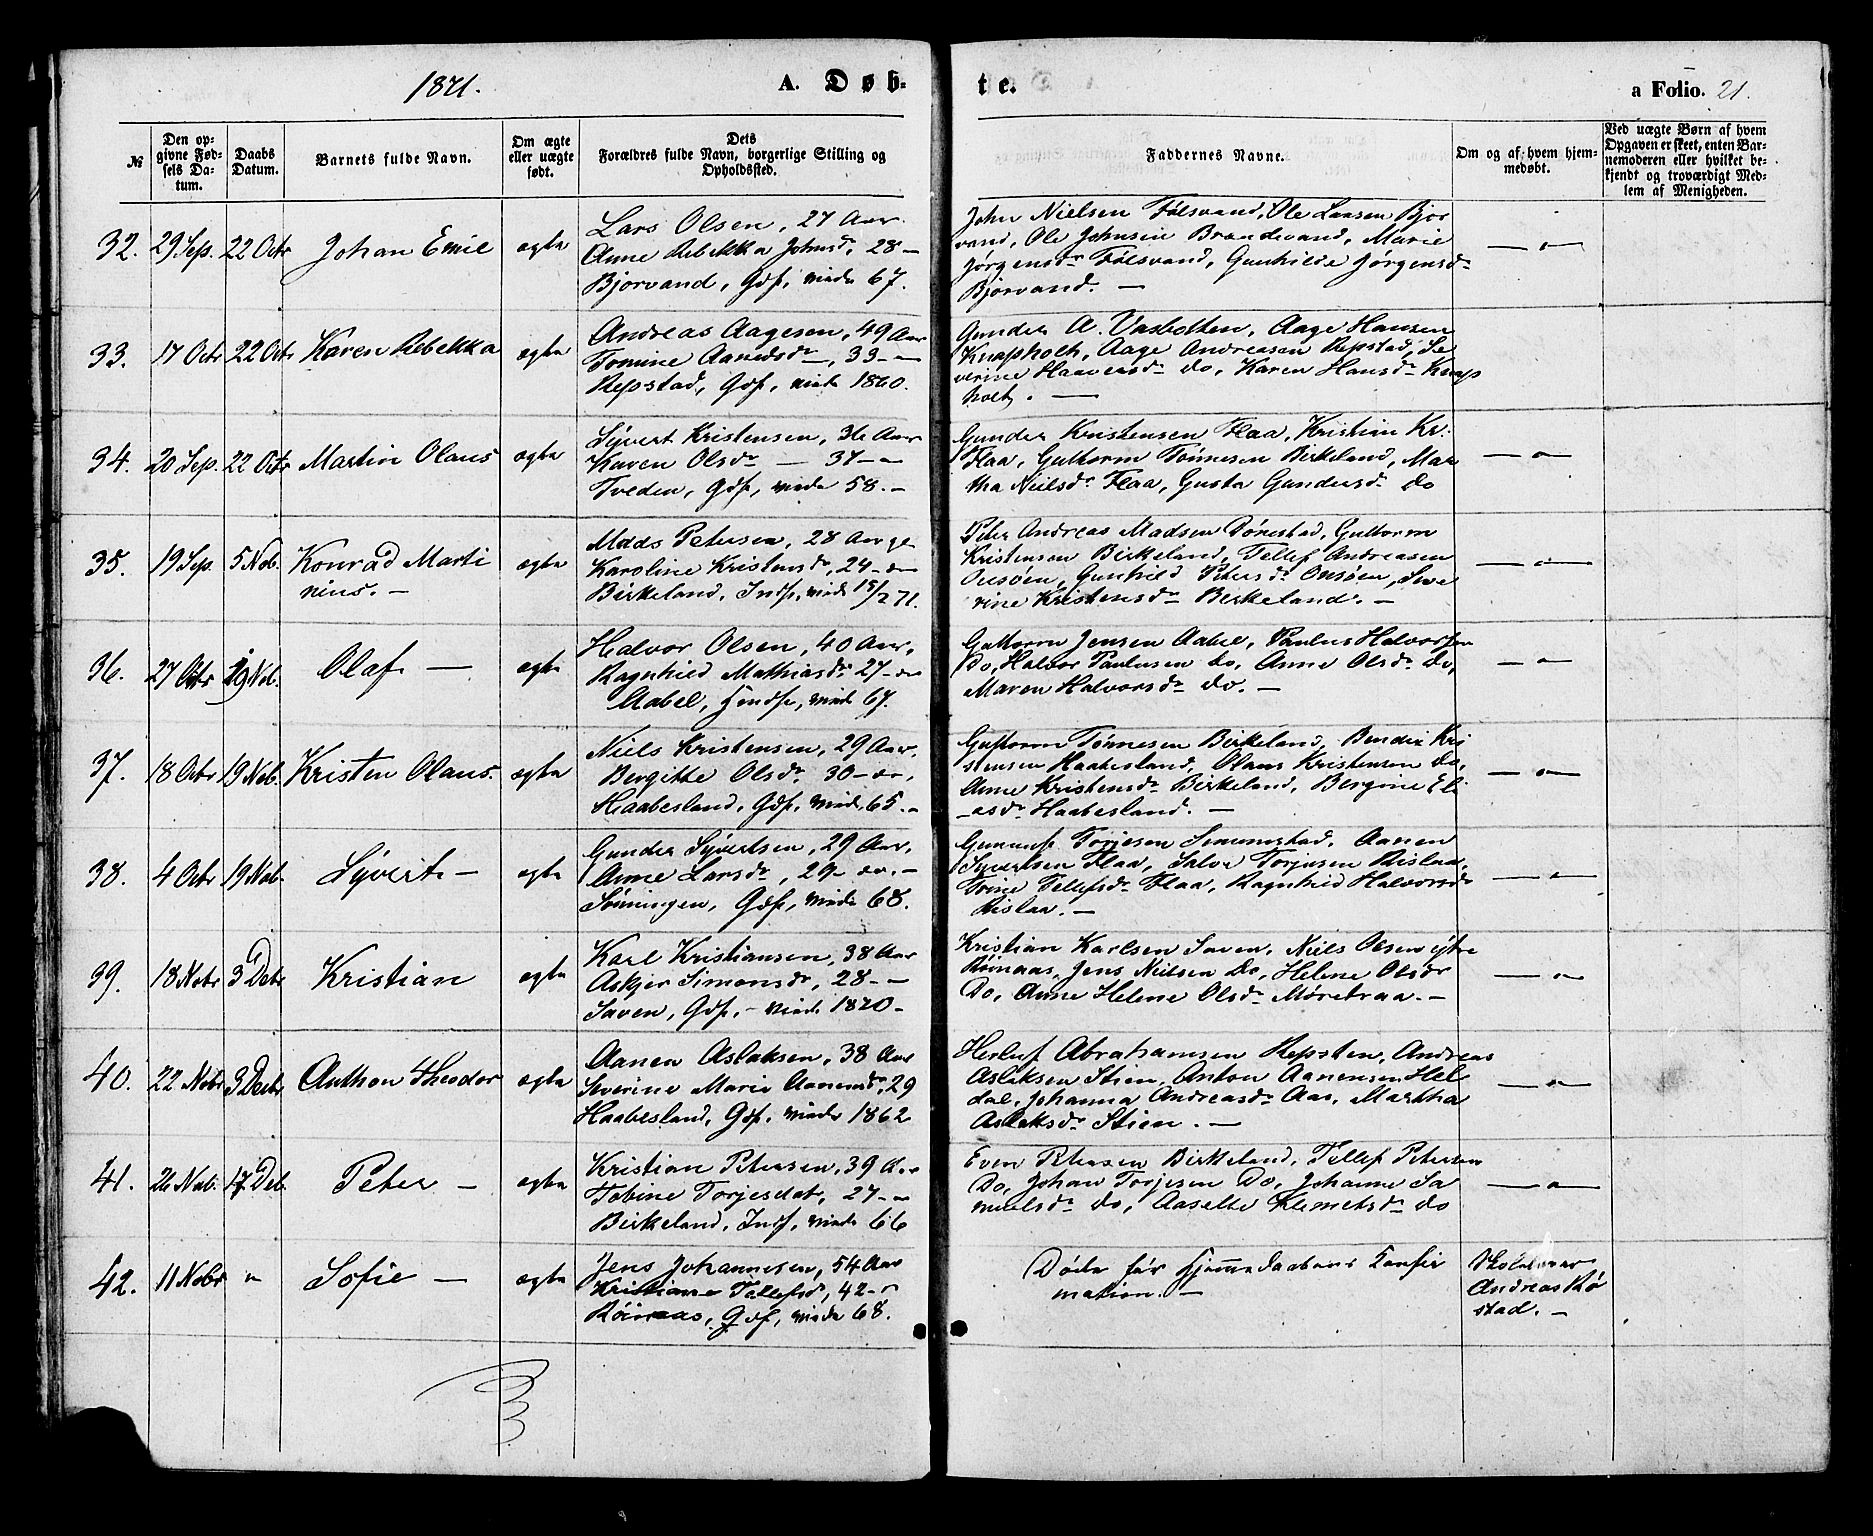 1871.
A. Døb-
te.
a Folio. 21.
№
Den op-
givne Fød-
sels Da-
tum.
Daabs
Datum.
Barnets fulde Navn.
Om ægte
eller uægte
født.
Dets
Forældres fulde Navn, borgerlige Stilling og
Opholdssted.
Faddernes Navne.
Om og af hvem hjem-
medøbt.
Ved uægte Børn af hvem
Opgaven er skeet, enten Bar-
nemoderen eller hvilket be-
kjendt og troværdigt Med-
lem af Menigheden.
32. 29 Sep. 22 Octr Johan Emil ægte
Lars Olsen, 27 Aar.
Anne Rebekka Johnsd. 28 —
Bjorvand, Gdf, viede 67.
John Nielsen Fölsvand, Ole Larsen Bjor
vand, Ole Johnsen Brandevand, Marie
Jørgensdr Fölsvand, Gunhilde Jørgensdr
Bjorvand. —
— " —
33. 17 Octr 22 Octr Karen Rebekka ægte
Andreas Aagesen, 49 Aar
Tomine Aanensdr —, 33 — "
Repstad, Gdf, viede 1860.
Gunder A. Vasbotten, Aage Hansen
Knapholt, Aage Andreasen Repstad, Se
verine Haavorsdr do, Karen Hansdr Knap
holt. —
34. 20 Sep. 22 Octr Martin Olaus ægte
Syvert Kristensen, 36 Aar
Karen Olsdr — 37 — "
Tveden, Gdf, viede 58. —
Gunder Kristensen Flaa, Kristian Kr.
Flaa, Guttorm Tönnesen Birkeland, Mar
tha Nielsdr Flaa, Gusta Gundersdr do
— " —
35. 19 Sep 5 Nob. Konrad Marti
nius. — ægte
Mads Petersen, 28 Aar
Karoline Kristensdr, 24 — "
Birkeland, Indf, viede 15/2 71.
Peter Andreas Madsen Dönnestad, Guttorm
Kristensen Birkeland, Tellef Andreasen
Onsöen, Gunhild Petersdr Onsöen, Seve
rine Kristensdr Birkeland. —
— " —
36. 27 Octr 19 Nob. Olaf — ægte
Halvor Olsen, 40 Aar,
Ragnhild Mathiasdr 27 — "
Aabel, Indf, viede 67.
Guttorm Jensen Aabel, Paulus Halvorsen
Do, Halvor Paulusen do, Anne Olsdr do,
Maren Halvorsdr do. —
— " —
37. 18 Octr 19 Nob. Kristen Olaus. ægte
Niels Kristensen, 29 Aar.
Bergitte Olsdr 30 — ",
Haabesland, Gdf, viede 65. —
Guttorm Tönnesen Birkeland, Bendix Kri
stensen Haabesland, Olaus Kristensen do,
Anne Kristensdr Birkeland, Bergine Eli
asdr Haabesland. —
— " —
38. 4 Octr 19 Nob. Syvert — ægte
Gunder Syvertsen, 29 Aar,
Anne Larsdr, 29 — ". —
Sönningen, Gdf, viede 68.
Gunuf Torjesen Simonstad, Aanen
Syvertsen Flaa, Salve Torjusen Rislaa,
Trine Tellefsdr Flaa, Ragnhild Halvorsdr
Rislaa. —
— " —
39. 18 Nobr 3 Debr Kristian ægte
Karl Kristiansen, 38 Aar
Askjer Simonsdr, 28 — —
Saven, Gdf. — viede 1870 —
Kristian Karlsen Saven, Niels Olsen ytre
Röinaas, Jens Nielsen Do, Helene Olsdr
Do, Anne Helene Olsdr Möretraa. —
— " —
40. 22 Nobr 3 Decbr Anthon Theodor ægte
Aanen Aslaksen, 38 Aar
Severine Marie Aanensdr, 29
Haabesland, Gdf. viede 1862
Herluf Abrahamsen Repsten, Andreas
Aslaksen Stien, Anton Aanensen Hel
dal, Johanna Andreasdr Aas, Martha
Aslaksdr Stien. —
— " —
41. 26 Nob. 17 Deb. Peter — ægte
Kristian Petersen, 39 Aar
Tobine Torjesdat, 27 — "
Birkeland, Indf, viede 66
Even Petersen Birkeland, Tellef Petersen
Do, Johan Torjesen Do, Johanne Sa
muelsdr do, Aaselte Klemetsdr do
— " —
42. 11 Nobr " Sofie — ægte
Jens Johannesen, 54 Aar
Kristiane Tellefsd, 42 — "
Röinaas, Gdf, viede 68.
Döde för Hjemmedaabens Konfir
mation. —
Andreas Rö
stad. —